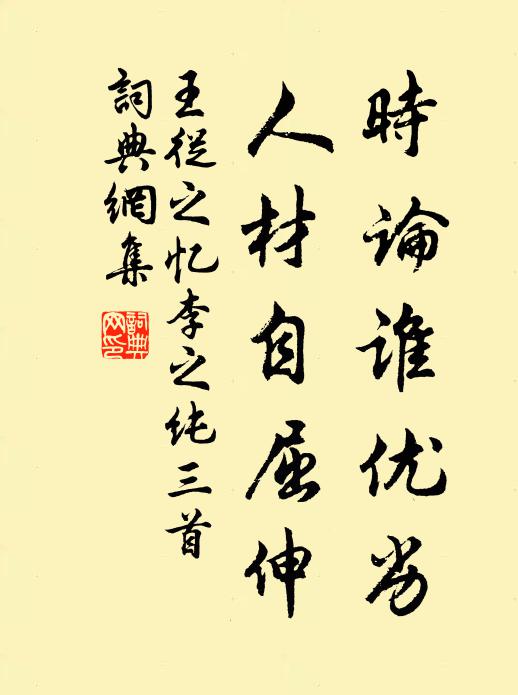 時論誰优劣
人材自屈伸
王從之忆李之纯三首
詞典網集
詞典
网印